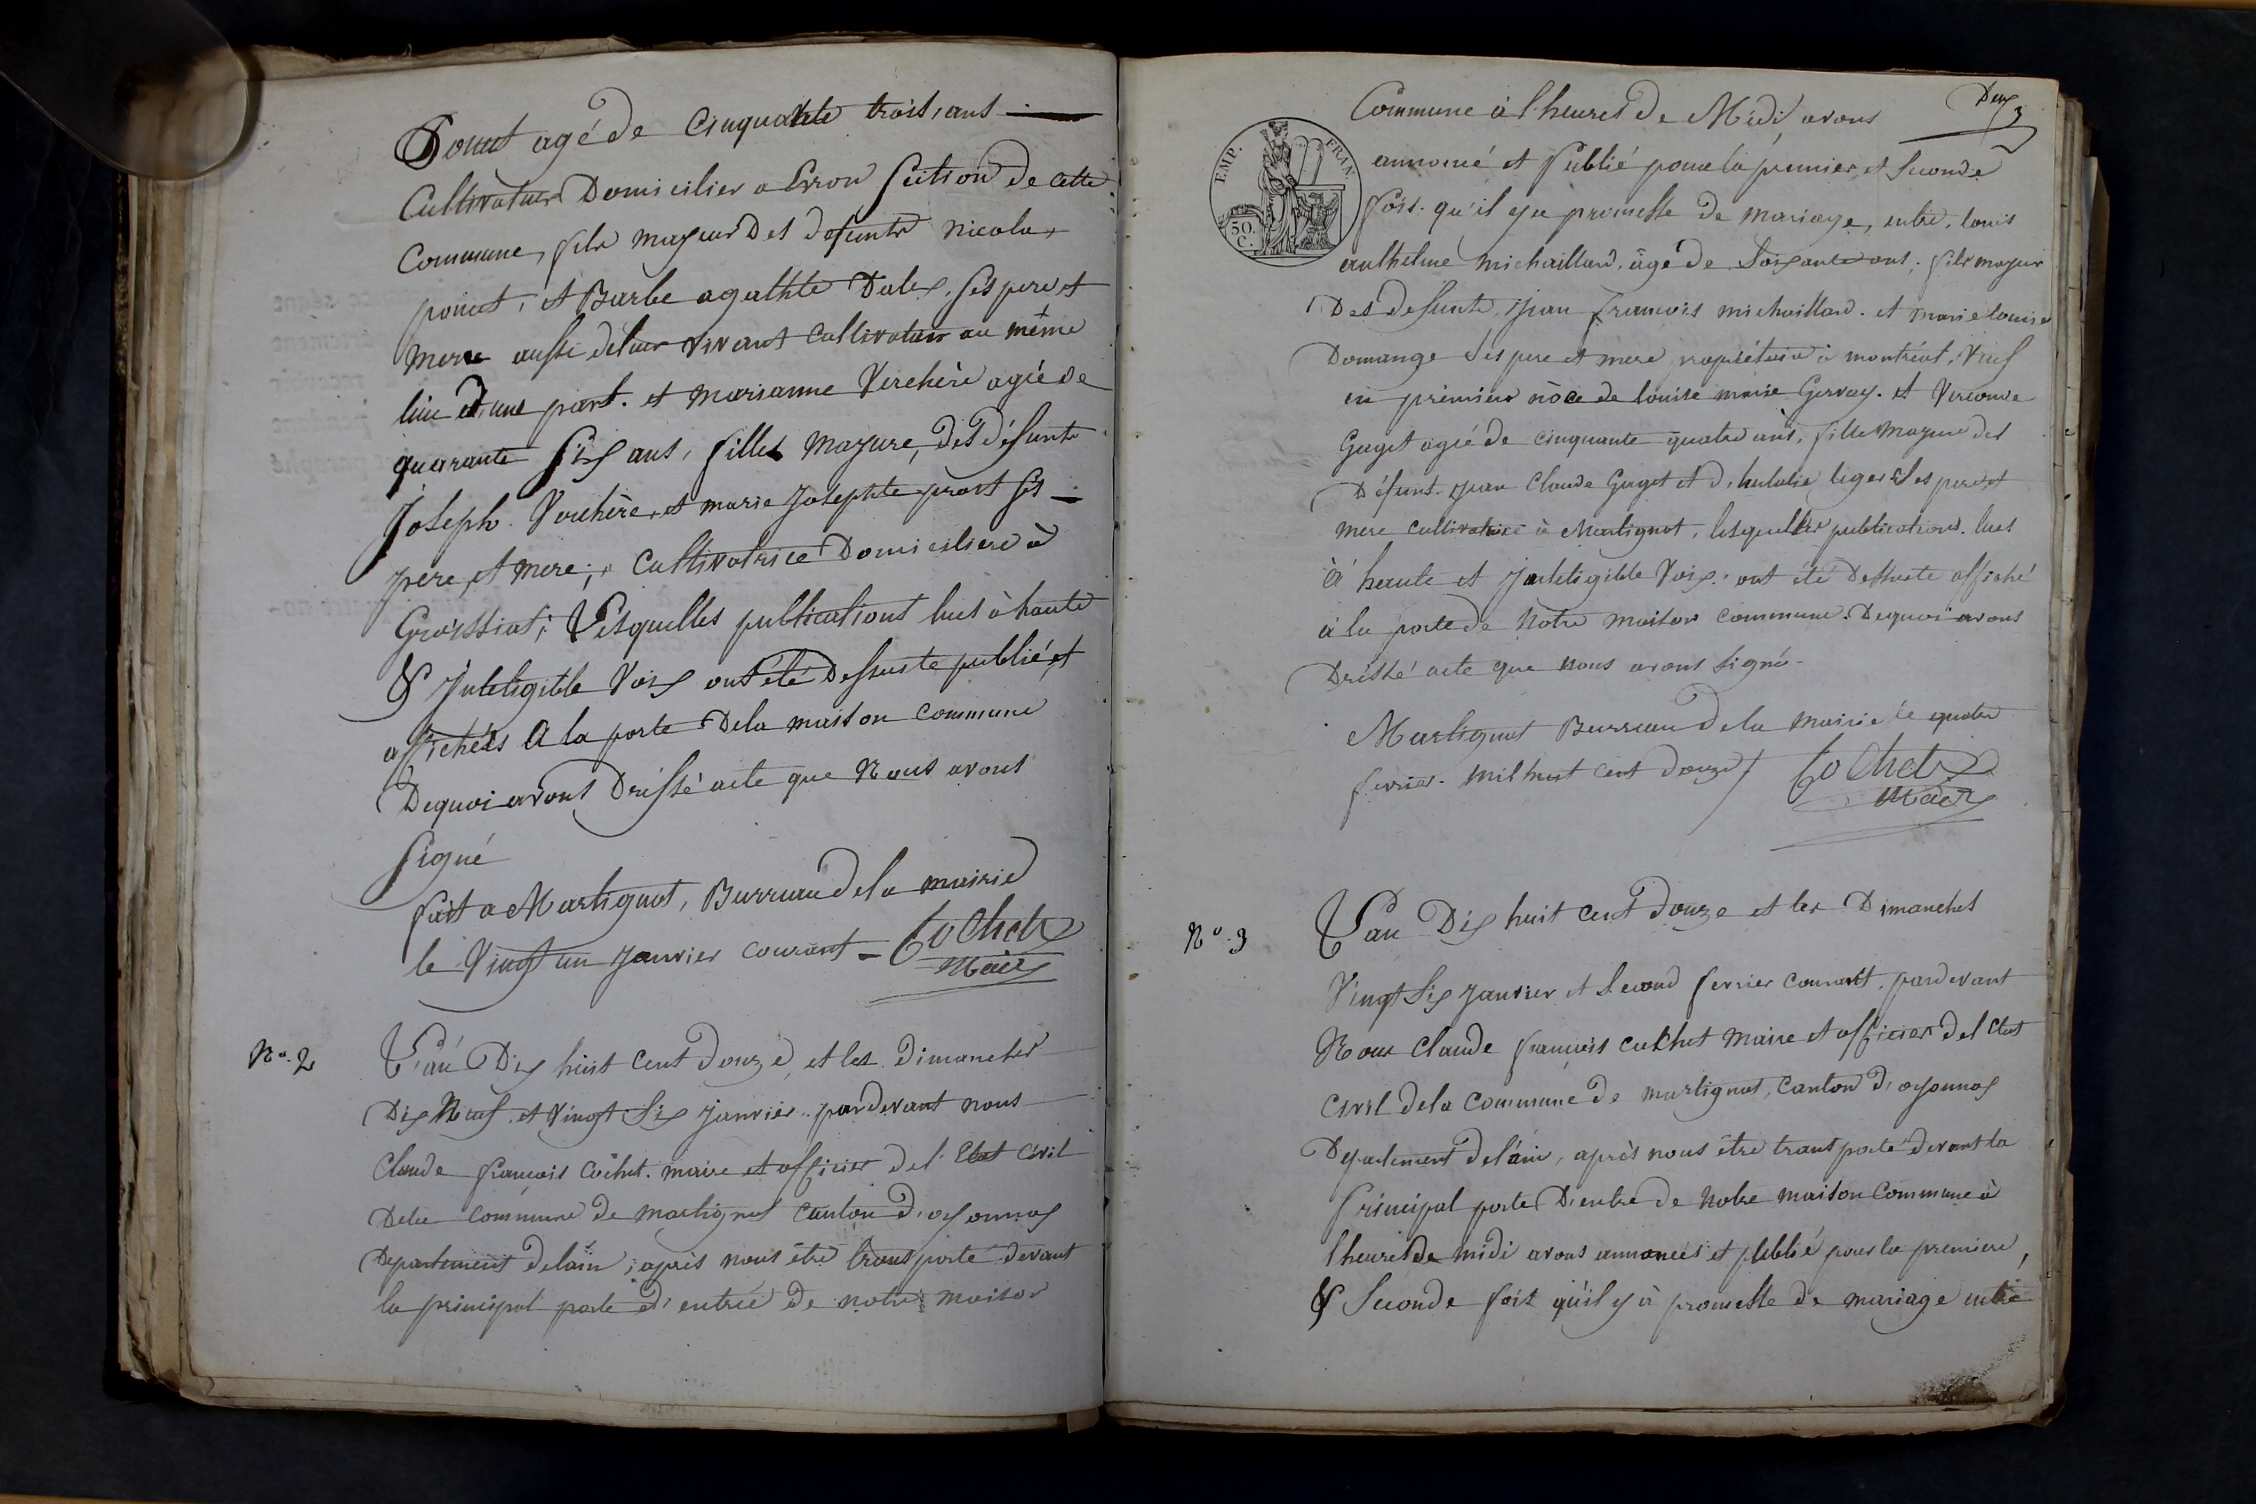 Ponut agé de Cinquante trois, ans
Cultivateur Domicilier a Evron section de cette
Commune, fils majeur Des defunts nicolas
ponut, et Barbe agathte Dalex, ses pere et
mere aussi deleur vivant Cultivateur au même
lieu d'une part. et marianne Verchère agée de
quarante six ans, fille mayure, des défunts
Joseph Verchère, et marie Josephte prost ses
père, et mere; Cultivatrice Domiciliere à
Groissiat; Lesquelles publications lues à haute
& Inteligible Voix ont été Dessuste publié, et
affichées A la porte Dela maison commune
Dequoi avons Dressé acte que Nous avons
signé
fait a Martignat, Burreau dela mairie
le Vingt un Janvier courant - Cochet
Maire
N°. 2
L'an Dix huit Cent douze, et les dimanches
Dix Neuf et Vingt Six janvier pardevant nous
Claude françois Cochet. maire et officier de l'Etat Civil
Dela commune de martignat Canton d'oyonnax
Departement delain; après nous être transporté devant
la principal porte d'entrée de notre maison
Deux
3
EMP. FRAN.
50.
C.
Commune à l'heures de Midi, avons
annoncé et Publié pour la premier et seconde
fois. qu'il y a promesse de mariage, entre, louis
anthelme michaillard, âgé de Soixante ans; fils mayeur
Des defunts, Jean françois michaillard. et marie louise
Domange ses pere et mere, propriétaire à montréal, Veuf
en premier nôce de louise marie Gervay. et
Guget agée de cinquante quatre ans, fille mayure des
Défunt. Jean Claude Guget et d'hulalie liger Ses pere et
mere cultivatrice à Martignat, lesquelles publications. lues
à haute et Inteligible Voix. ont été Dessuste affiché
à la porte de Notre maison commune. Dequoi avons
Dressé acte que nous avons signé.
Martignat Burreau dela mairie le quatre
fevrier. mil huit cent douze Cochet
Maire
N°. 3
L'an Dix huit cent douze et les Dimanches
Vingt Six Janvier et Second fevrier courant, pardevant
Nous Claude françois cochet maire et officier del'état
Civil dela Commune de martignat, Canton d'oyonnax
Departement del'ain, après nous être transporté devant la
Principal porte D'entre de Notre maison Commune à
l'heures de midi avons annoncés et publié pour la premiere,
& Seconde fois qu'il y à promesse de mariage entre